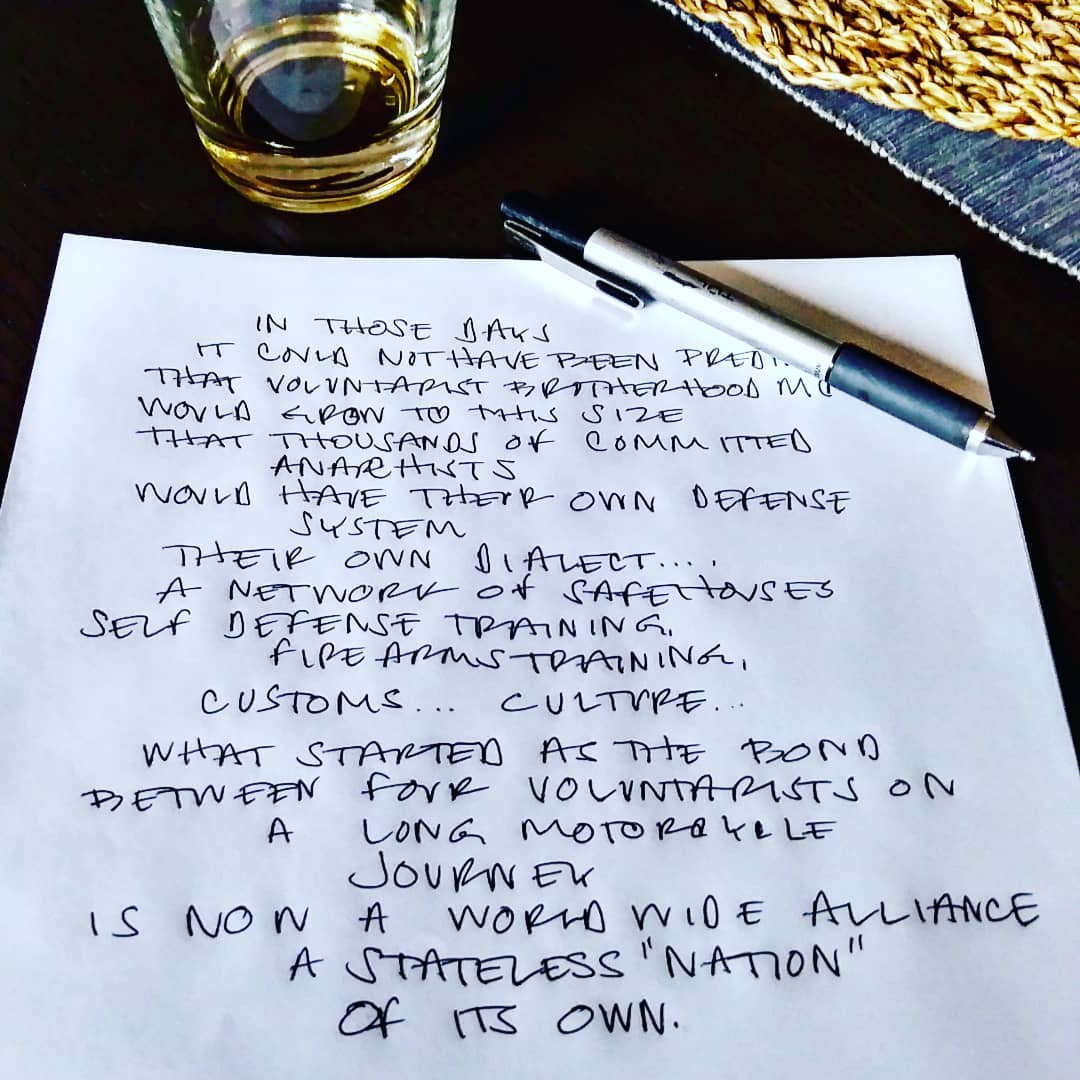 IN THOSE DAYS
IT COULD NOT HAVE BEEN
THAT VOLUNTARIST BROTHERHOOD MC
WOULD GROW TO THIS SIZE
THAT THOUSANDS OF COMMITTED
ANARCHISTS
WOULD HAVE THEIR OWN DEFENSE
SYSTEM
THEIR OWN DIALECT....
A NETWORK OF SAFEHOUSES
SELF DEFENSE TRAINING,
FIREARMS TRAINING,
CUSTOMS... CULTURE...
WHAT STARTED AS THE BOND
BETWEEN FOUR VOLUNTARISTS ON
A LONG MOTORCYCLE
JOURNEY
IS NOW A WORLD WIDE ALLIANCE
A STATELESS "NATION"
OF ITS OWN.